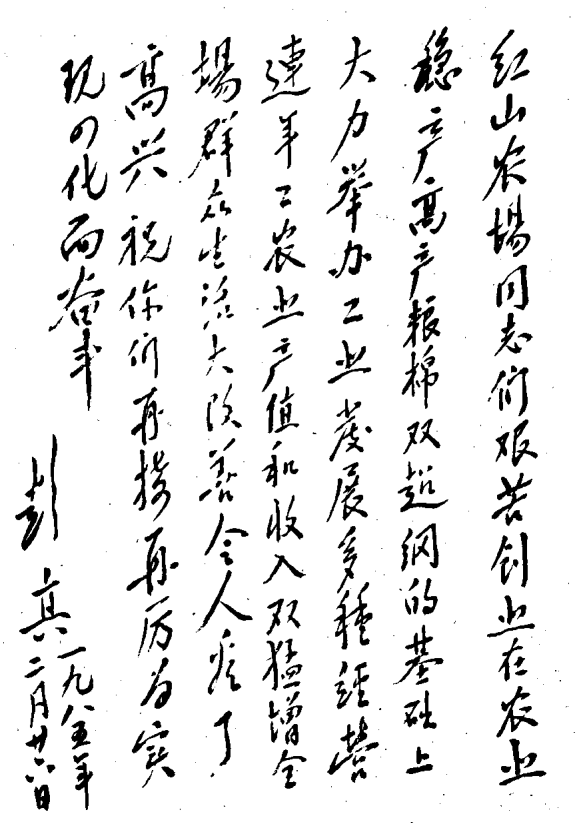 红山农場同志们艰苦创业在农业
稳产高产粮棉双超纲的基础上
大力举办工业发展多種经营
連年工农业产值和收入双猛增全
場群众生活大改善令人看了
高兴祝你们再接再厉为实
现四化而奋斗
彭真一九八五年
二月廿六日